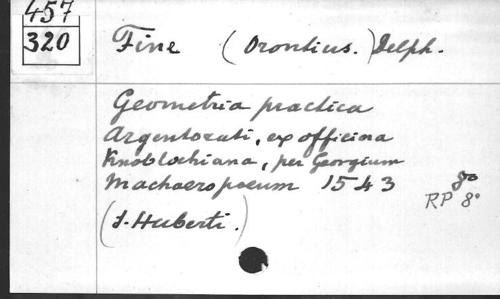 457
320
Fine (Orontius.) Delph.
Geometria practica
Argentorati, ex officina
Knoblochiana, per Georgium
Machaeropoeum 1543
8o
RP 8°
(S. Huberti.)